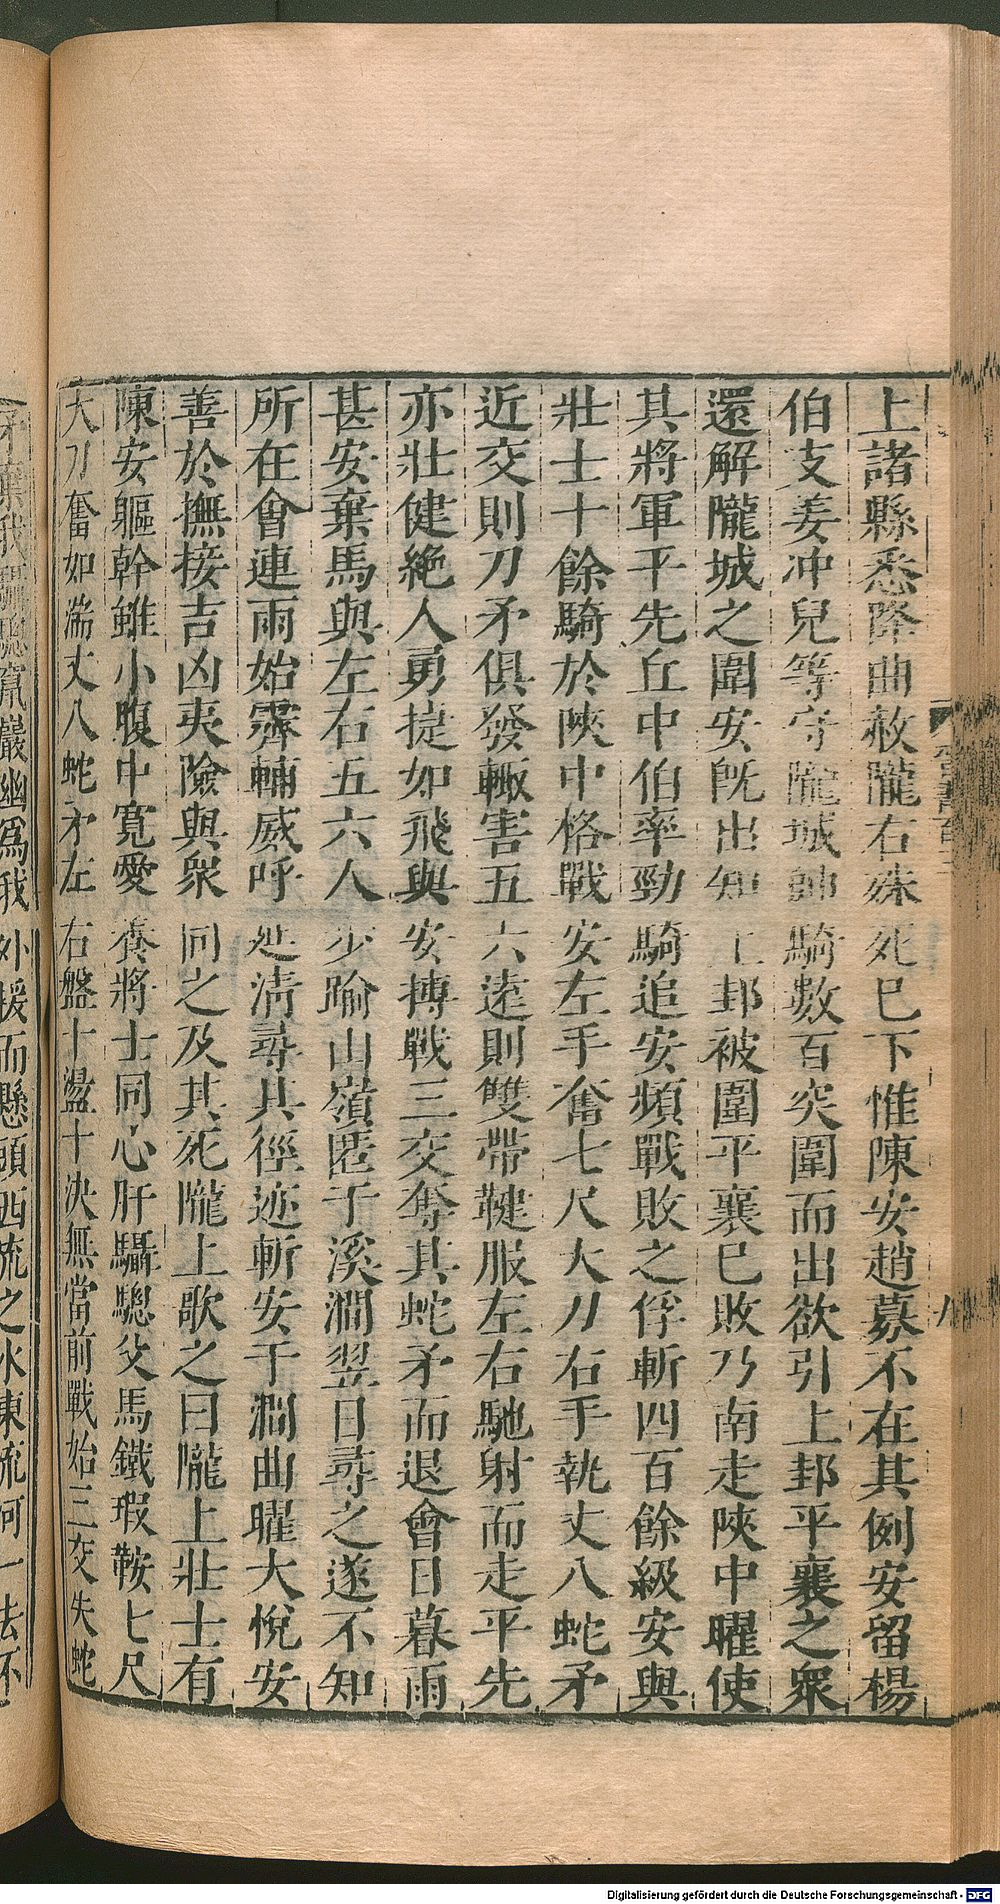 上諸縣悉降曲赦隴右殊死已下惟陳安趙募不在其例安留楊
伯支姜冲兒等守隴城帥騎數百突圍而出欲引上邽平襄之衆
還解隴城之圍安旣出知上邽被圍平襄已敗乃南走陝中曜使
其將軍平先丘中伯率勁騎追安頻戰敗之俘斬四百餘級安與
壯士十餘騎於陝中格戰安左手奮七尺大刀右手執丈八蛇矛
近交則刀矛俱發輙害五六遠則雙帶鞬服左右馳射而走平先
亦壯健絶人勇捷如飛與安搏戰三交奪其蛇矛而退會日暮雨
甚安棄馬與左右五六人步踰山嶺匿于溪澗翌日尋之遂不知
所在會連雨始霽輔威呼延淸尋其徑迹斬安于澗曲曜大悅安
善於撫接吉凶夷險與衆同之及其死隴上歌之曰隴上壯士有
陳安軀幹雖小腹中寛愛養將士同心肝驌驄父馬鐵瑕鞍七尺
大刀奮如湍丈八蛇矛左右盤十盪十決無當前戰始三交失蛇
矛棄我驌驄竄巖幽爲我外援而懸頭西流之水東流河一去不
Digitalisierung gefördert durch die Deutsche Forschungsgemeinschaft - DFG